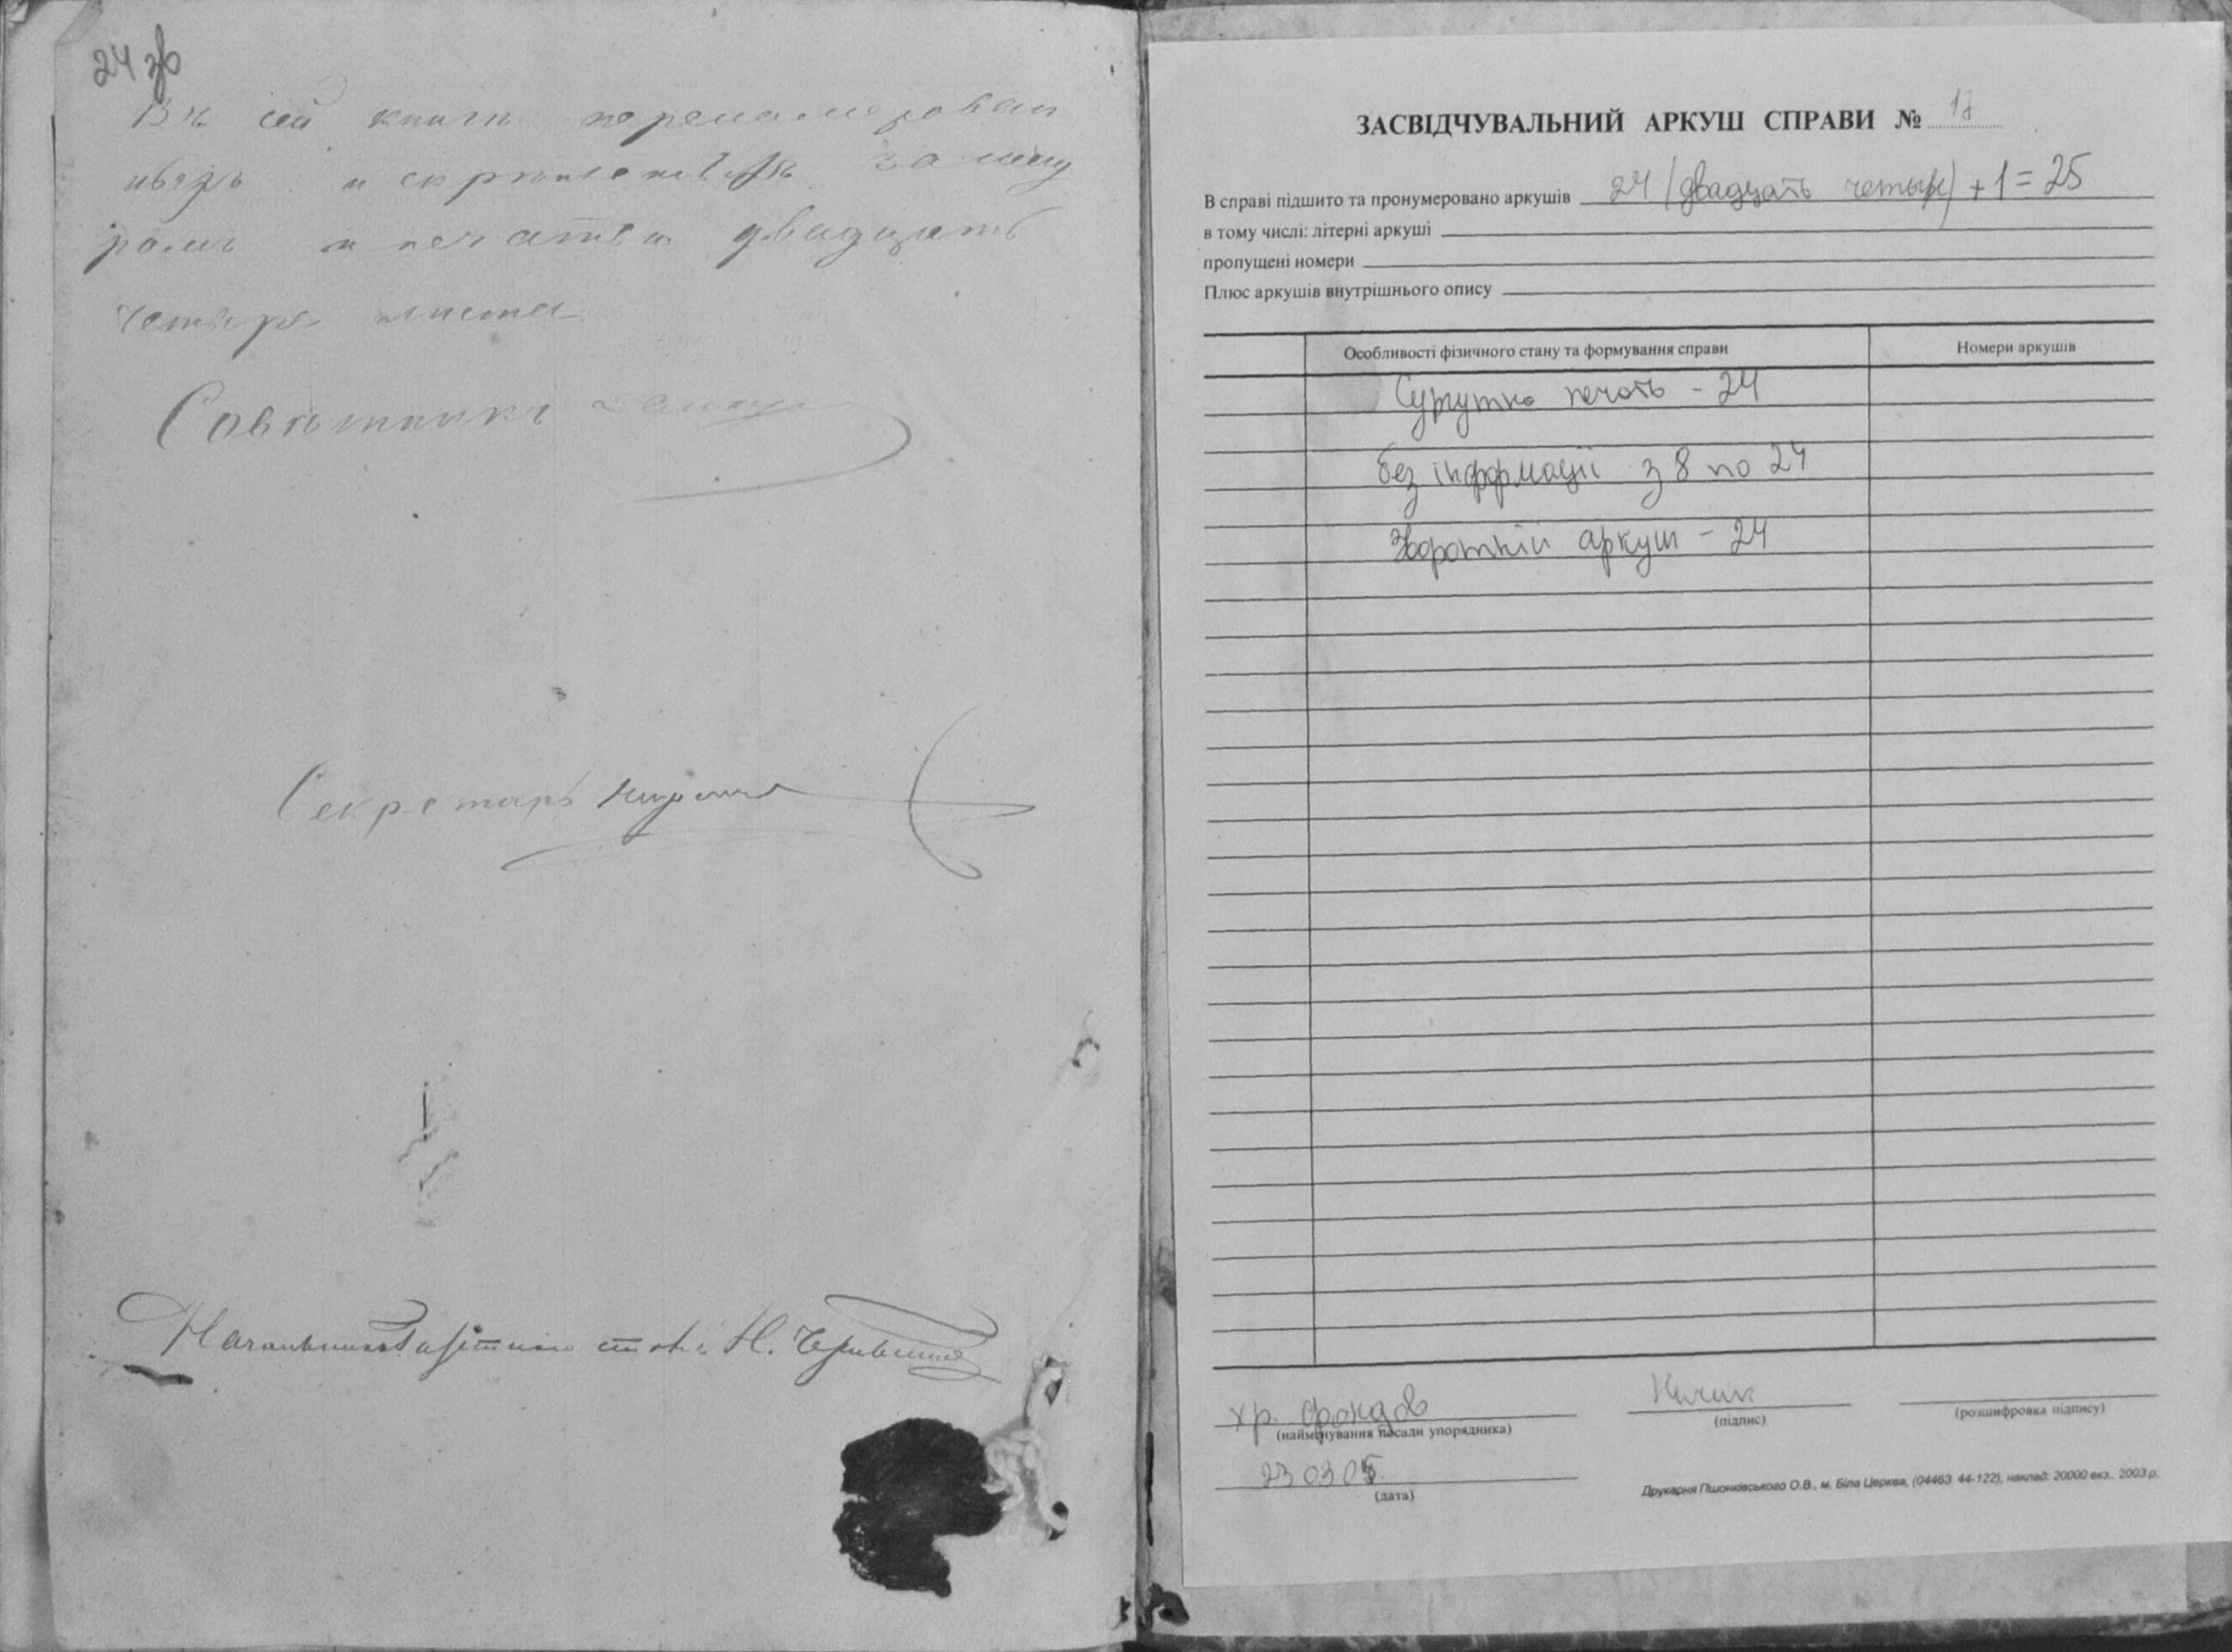 24 зв
Въ сей книгѣ перенумерован
ныхъ и скрѣпленныхъ за шну
ромъ и печатью двадцать
четыре листа
Совѣтникъ
Секретарь
Начальникъ Газетнаго стола Н.
ЗАСВІДЧУВАЛЬНИЙ АРКУШ СПРАВИ №
В справі підшито та пронумеровано аркушів 24 (двадцать четыре) + 1 = 25
в тому числі: літерні аркуші
пропущені номери
Плюс аркушів внутрішнього опису
Особливості фізичного стану та формування справи Номери аркушів
Сургутна печать - 24
без інформації з 8 по 24
Зворотній аркуш - 24
хр. фондов
(найменування посади упорядника) (підпис) (розшифровка підпису)
23 03 05
(дата)
Друкарня Пшонківського О.В., м. Біла Церква, (04463 44-122), наклад: 20000 екз., 2003 р.